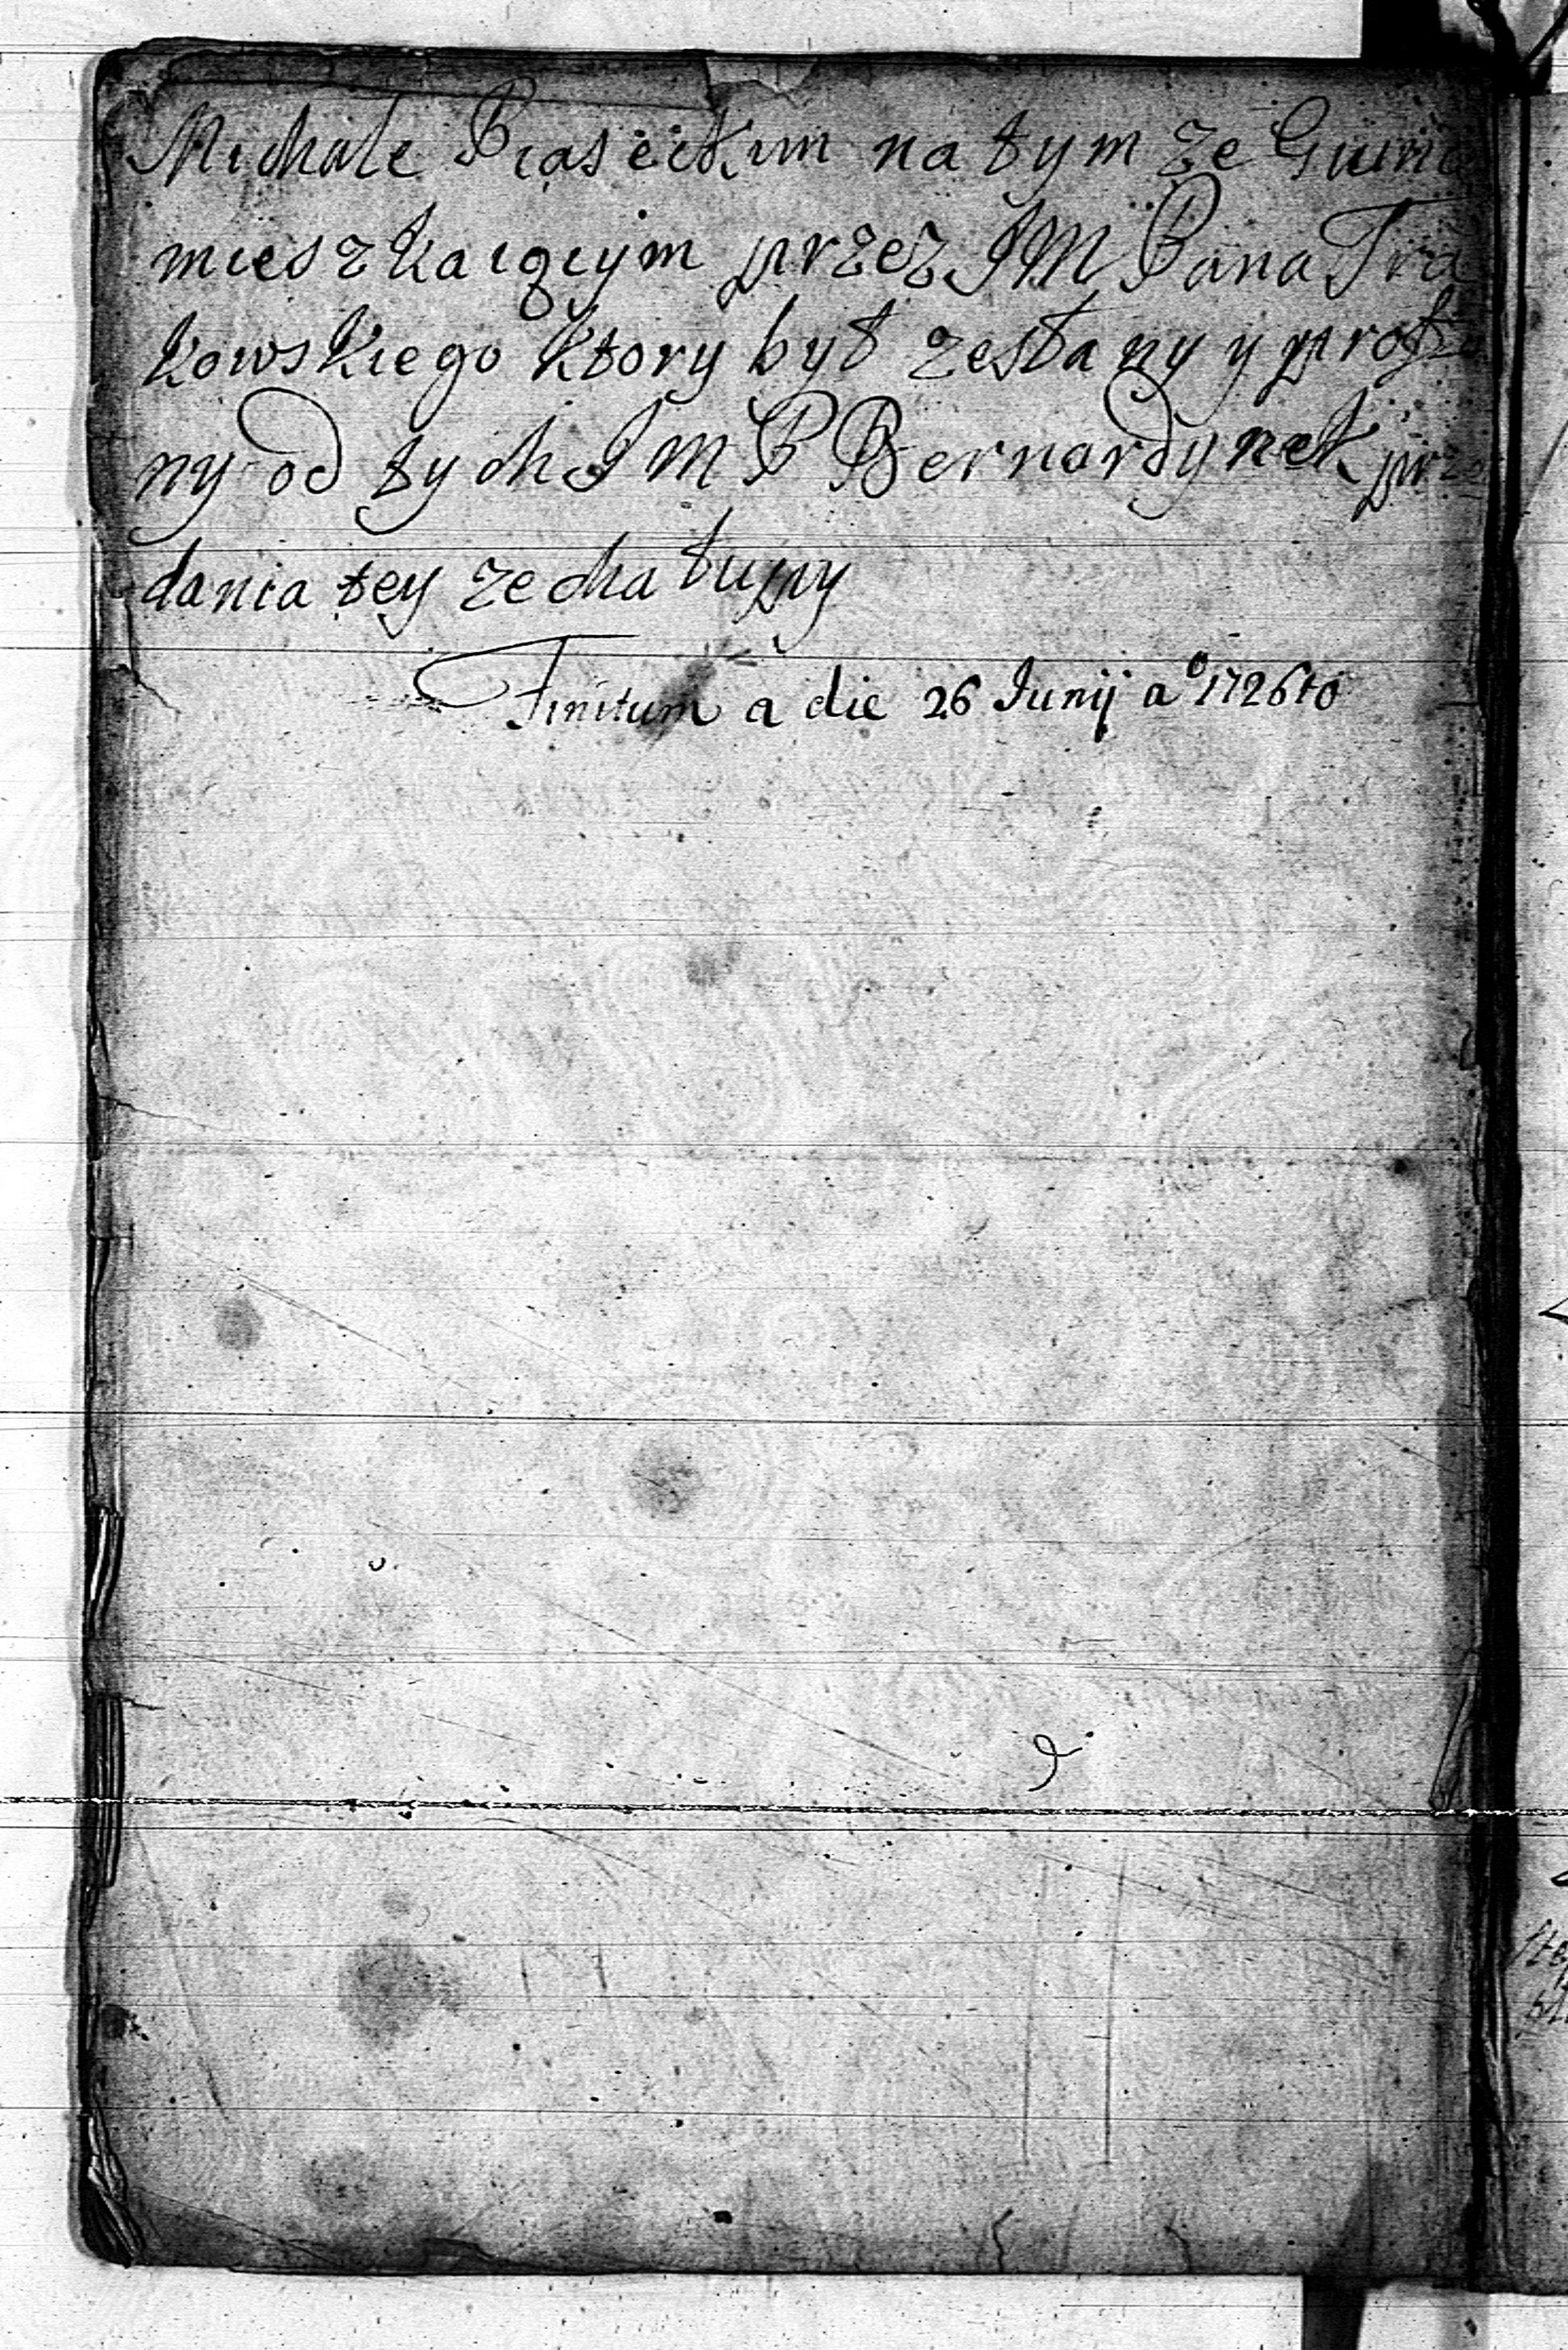 Michałe Piąseckim na tym że Gruncie
mieszkaiącym przez JM Pana Tra
kowskiego ktory był zesłany y proszo
ny od tych JM P Bernardynek prze
dania tey że chałupy
Finitum a die 26 Iunij a⁰ 1726to